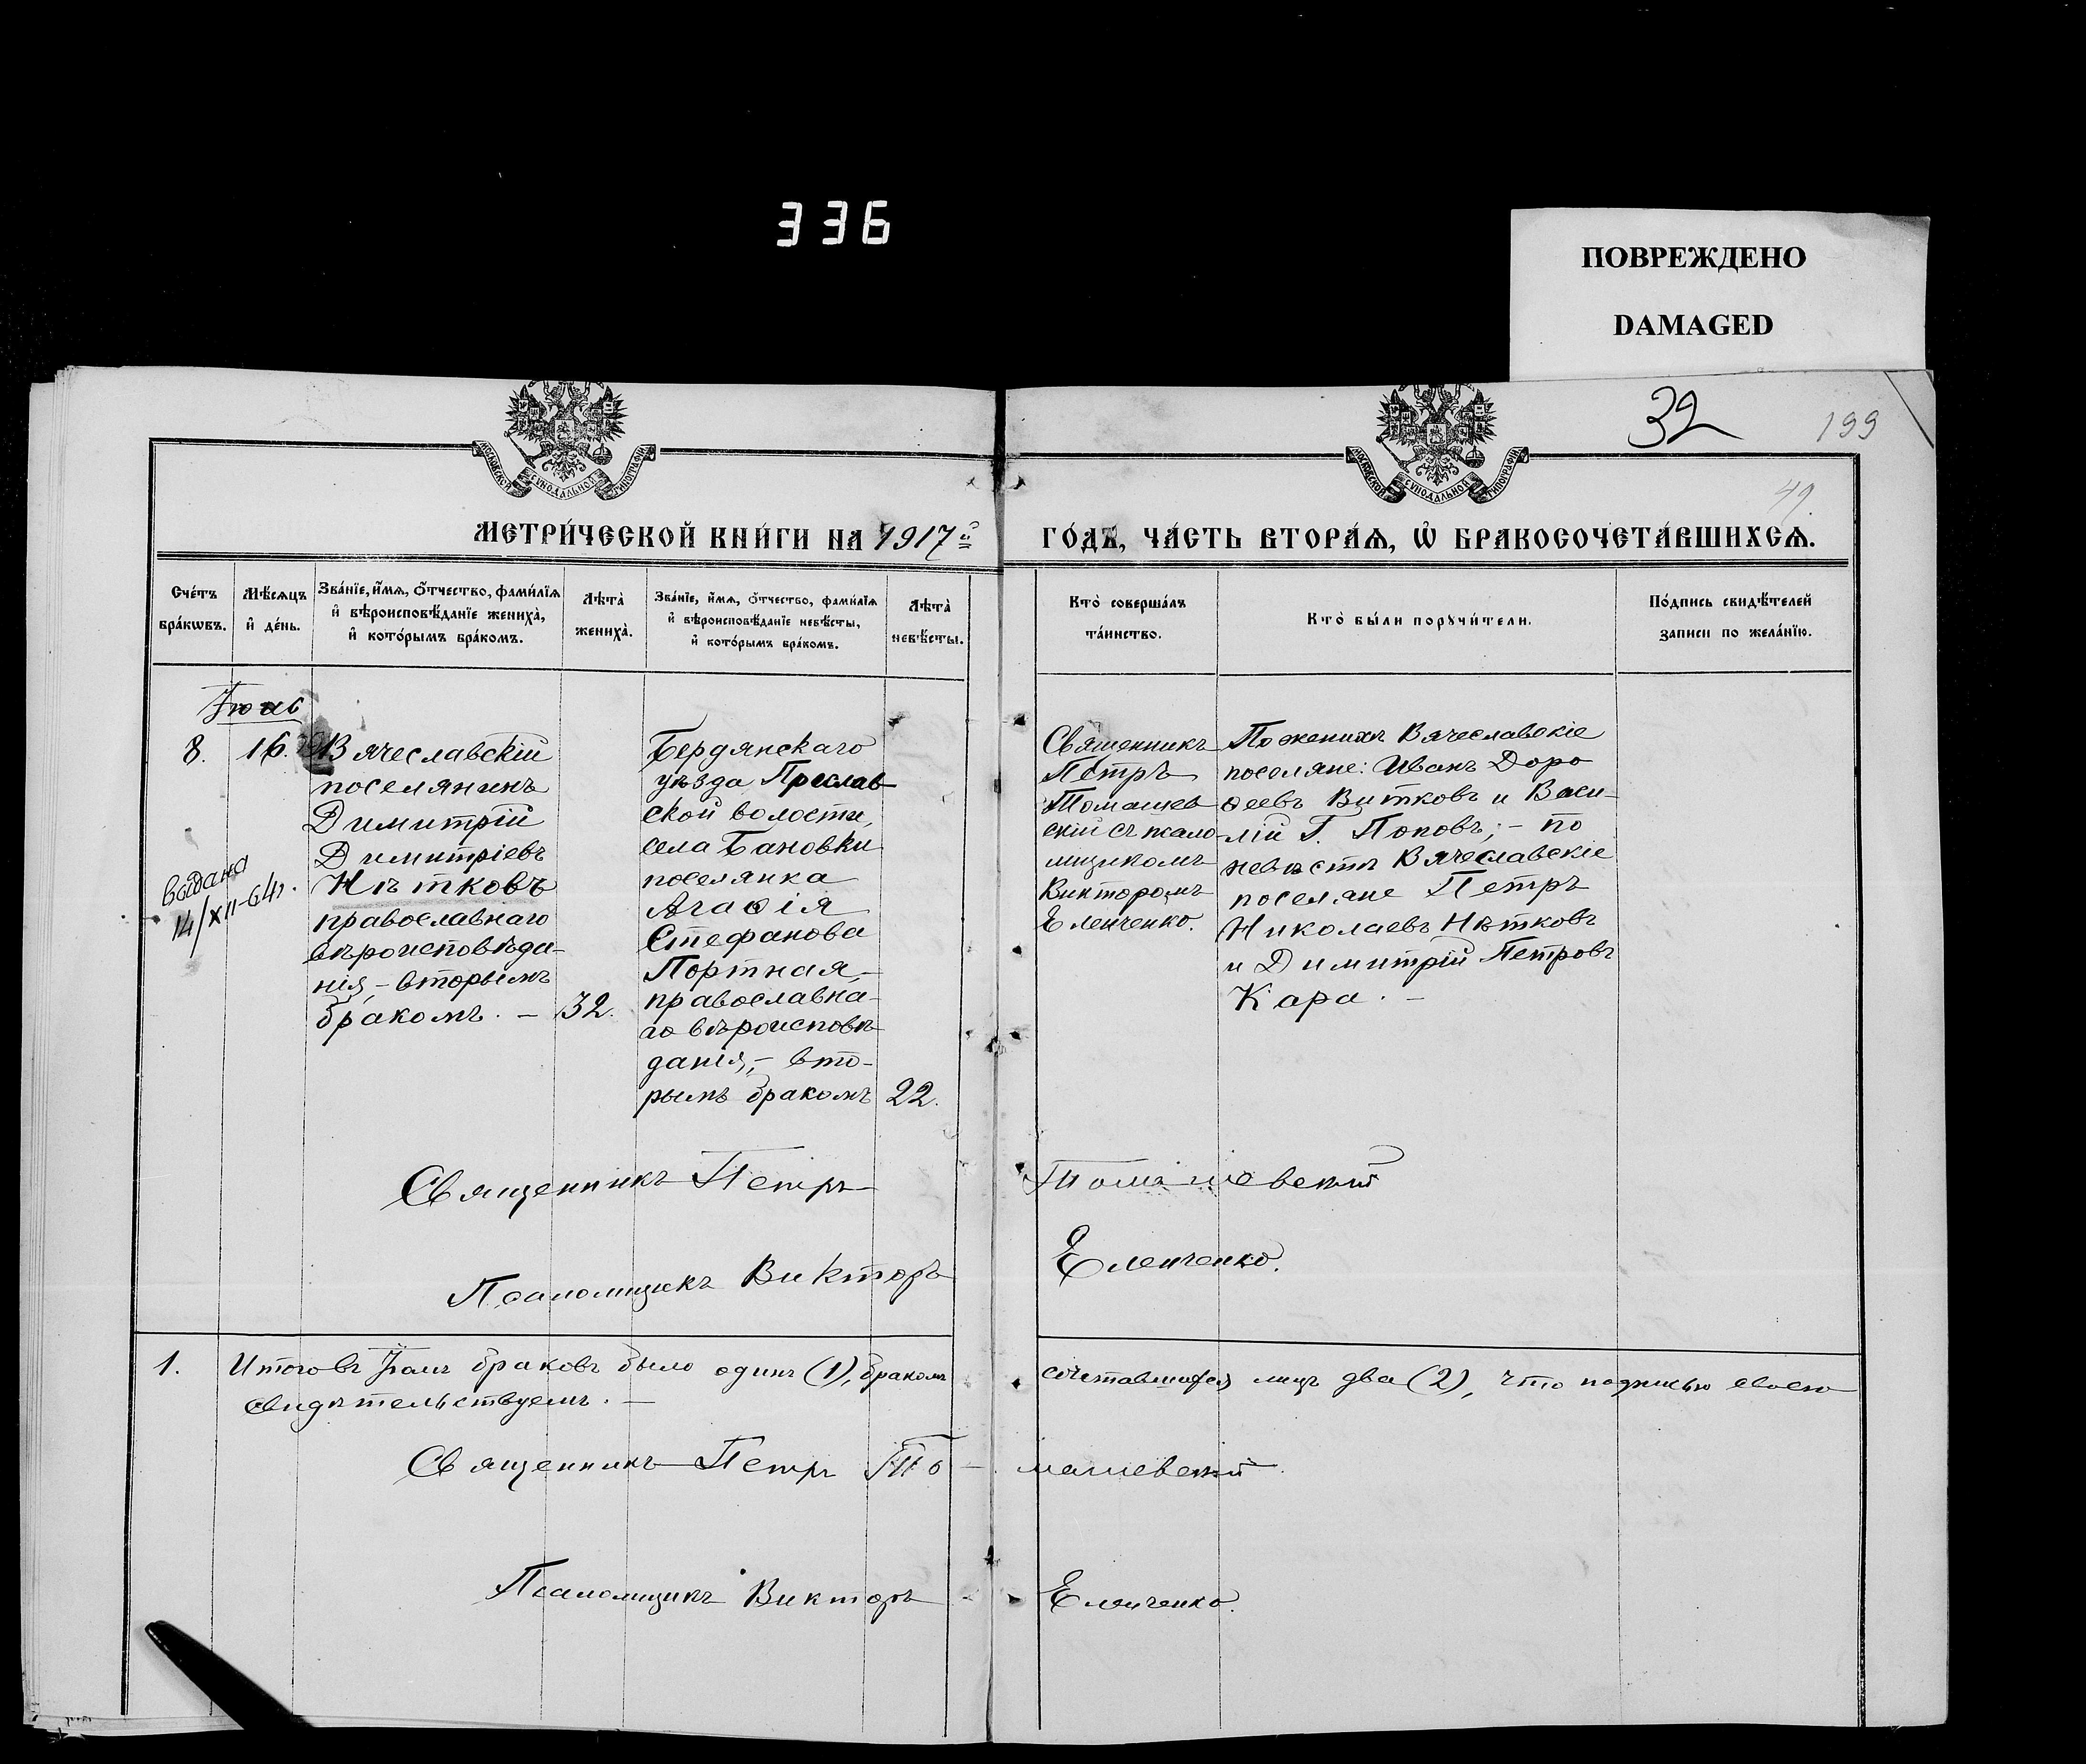 336
ПОВРЕЖДЕНО
DAMAGED
32
199
49.
МОСКОВСКОЙ СѴНОДАЛЬНОЙ ТИПОГРАФІИ
МОСКОВСКОЙ СѴНОДАЛЬНОЙ ТИПОГРАФІИ
МЕТРИ́ЧЕСКОЙ КНИ́ГИ НА 1917й
ГО́ДЪ, ЧА́СТЬ ВТОРА́Ѧ, Ѡ҆ БРАКОСОЧЕТА́ВШИХСѦ.
Сче́тъ
бра́кѡвъ.
Мѣ́сѧцъ
и҆ де́нь.
Зва́нїе, и҆́мѧ, ѻ҆́тчество, фами́лїѧ
и҆ вѣроисповѣ́данїе жениха̀,
и҆ кото́рымъ бра́комъ.
Лѣта̀
жениха̀.
Зва́нїе, и҆́мѧ, ѻ҆́тчество, фами́лїѧ
и҆ вѣроисповѣ́данїе невѣ́сты,
и҆ кото́рымъ бра́комъ.
Лѣта̀
невѣ́сты.
Кто̀ соверша́лъ
та́инство.
Кто̀ бы́ли порꙋчи́тели.
По́дпись свидѣ́телей
записи по жела́нїю.
8.
16.
Вячеславскій
поселянинъ
Димитрій
Димитріевъ
Нѣтковъ
православнаго
вѣроисповѣда-
нія, – вторымъ
бракомъ. –
32.
выдана
14/XII-64г.
Бердянскаго
уѣзда Преслав-
ской волости,
села Бановки
поселянка
Агаѳія
Стефанова
Портная,
православна-
го вѣроисповѣ-
данія, – вто-
рымъ бракомъ
22.
Священникъ
Петръ
Томашев-
скій съ псало-
мщикомъ
Викторомъ
Еленченко.
По женихѣ Вячеславскіе
поселяне: Иванъ Доро
ѳеевъ Витковъ и Васи-
лій Г. Поповъ; – по
невѣстѣ Вячеславскіе
поселяне Петръ
Николаевъ Нѣтковъ
и Димитрій Петровъ
Кара. –
Священникъ Петръ Томашевскій
Псаломщикъ Викторъ Еленченко.
1. Итого въ браковъ было одинъ (1), бракомъ сочетавшихся лицъ два (2), что подписью своею
свидѣтельствуемъ. –
Священникъ Петръ То- машевскій.
Псаломщикъ Викторъ Еленченко.